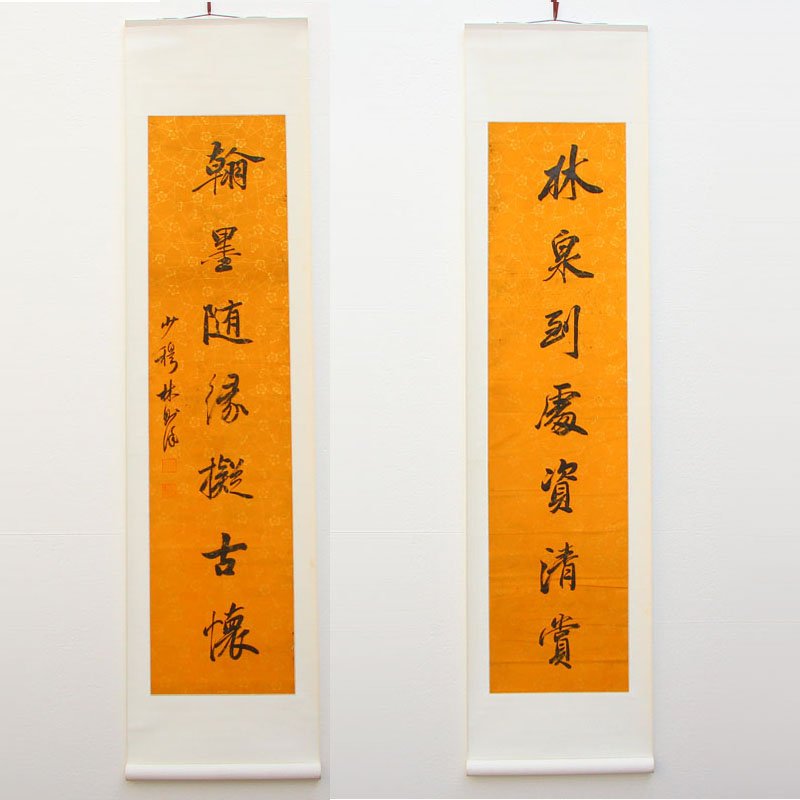 林泉到處資清賞
翰墨随缘擬古懷
少穆林則徐